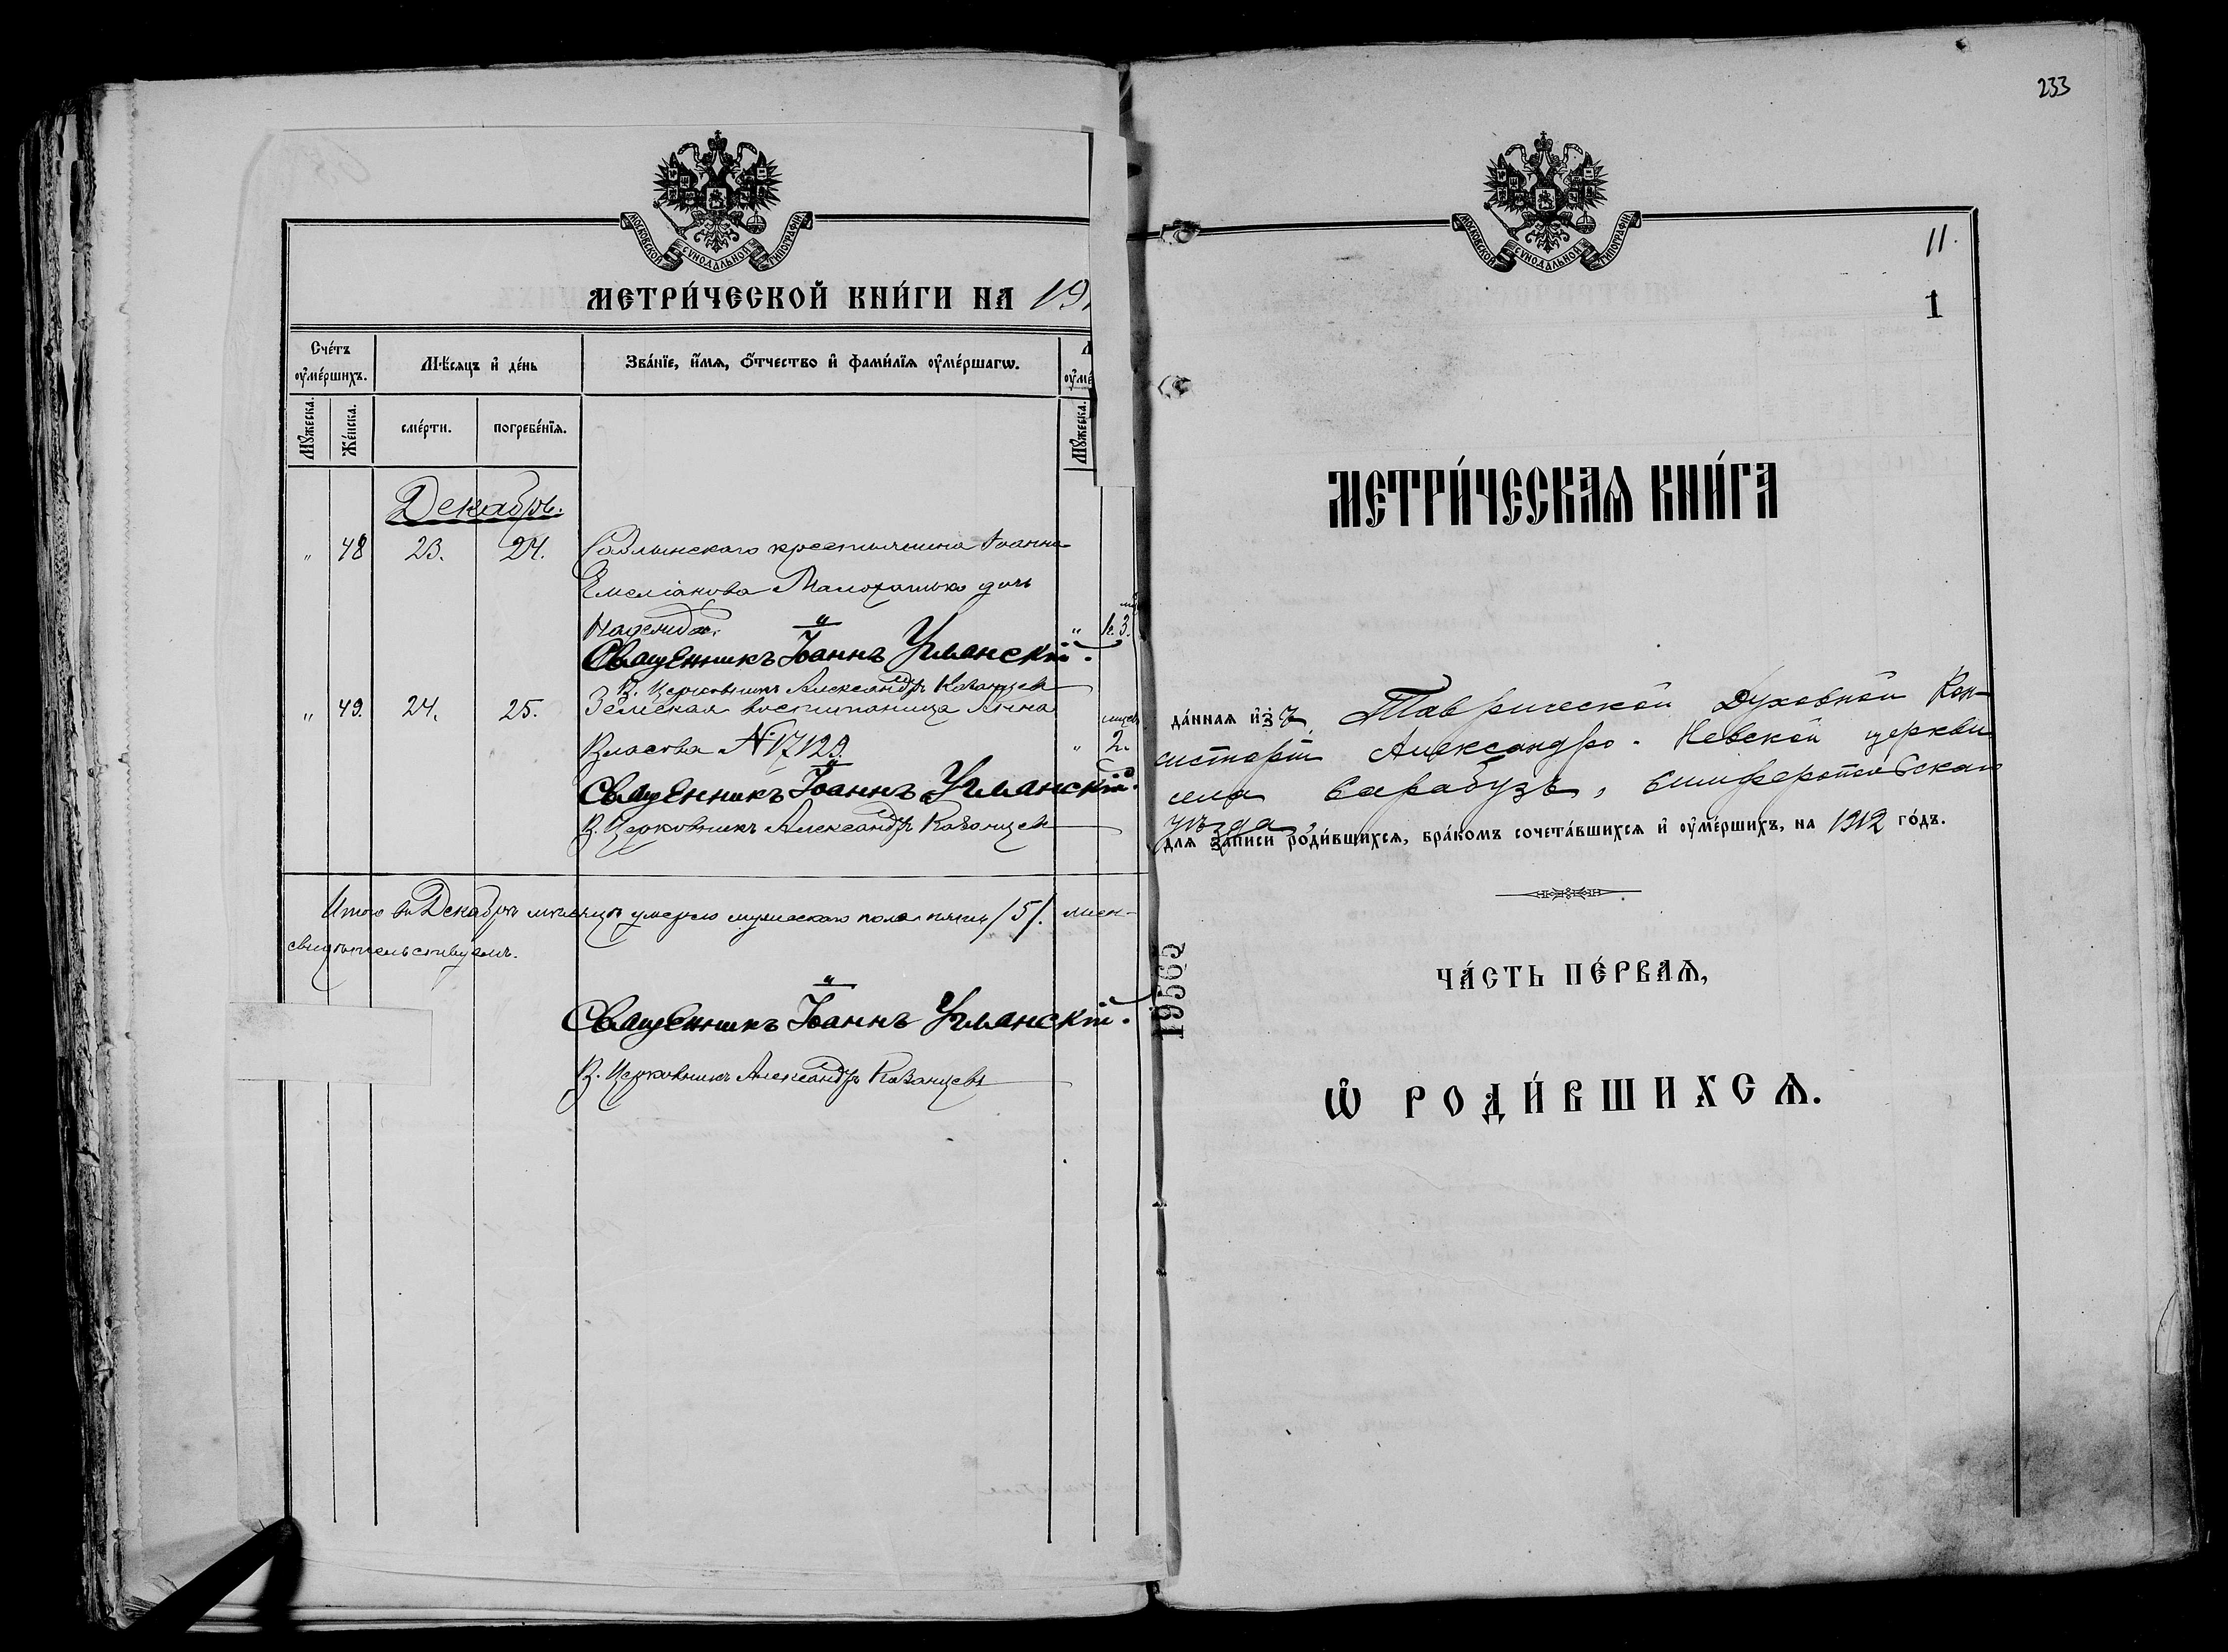 МОСКОВСКОЙ СѴНОДАЛЬНОЙ ТИПОГРАФІИ
МЕТРИ́ЧЕСКОЙ КНИ́ГИ НА 191
Сче́тъ оу҆ме́ршихъ.
Мѣ́сяцъ и҆ де́нь
Зва́нїе, и҆́мя, ѻ҆́тчество и҆ фами́лїя оу҆ме́ршагѡ.
Мꙋ́жеска.
Же́нска.
сме́рти.
погребе́нїя.
Мꙋ́жеска.
Декабрь.
" 48 23. 24. Саблынскаго крестьянина Іоанна
Емеліанова дочь
Надежда. " 1г. 3.
Священникъ Іоаннъ Уманскій.
В. Церковникъ Александръ Казанцевъ
" 49. 24. 25. Земская воспитаница Анна
Власова № 17129. " 2.
Священникъ Іоаннъ Уманскій.
В. Церковникъ Александръ Казанцевъ
Итого въ Декабрѣ мѣсяцѣ умерло мужескаго пола пять /5/. жен-
свидѣтельствуемъ.
Священникъ Іоаннъ Уманскій.
В. Церковникъ Александръ Казанцевъ
233
МОСКОВСКОЙ СѴНОДАЛЬНОЙ ТИПОГРАФІИ
11.
1
МЕТРИ́ЧЕСКАѦ КНИ́ГА
да́нная и҆зъ Таврической Духовной Кон-
систоріи Александро-Невской церкви
села Сарабузъ, Симферопольскаго
уѣзда,
для за́писи роди́вшихся, бра́комъ сочета́вшихся и҆ оу҆ме́ршихъ, на 1912 го́дъ.
19563
ЧА́СТЬ ПЕ́РВАѦ,
Ѡ҆ РОДИ́ВШИХСѦ.